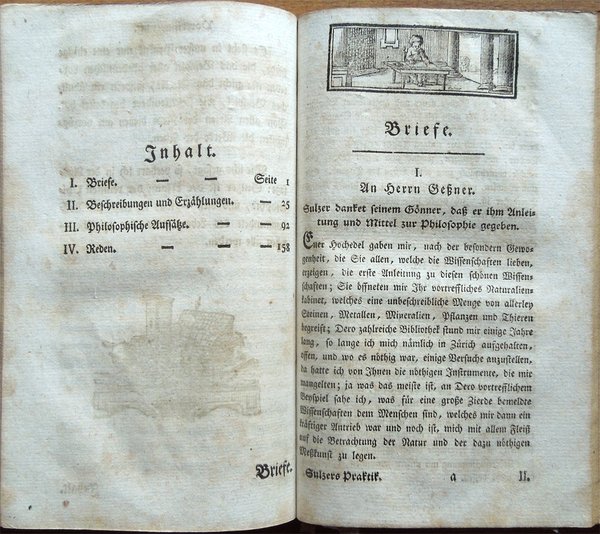 Inhalt.
I. Briefe. — — Seite 1
II. Beschreibungen und Erzählungen. — 25
III. Philosophische Aufsätze. — — 92
IV. Reden. — — — 158
Briefe.
Briefe.
I.
An Herrn Geßner.
Sulzer danket seinem Gönner, daß er ihm Anlei-
tung und Mittel zur Philosophie gegeben.
Euer Hochedel gaben mir, nach der besondern Gewo-
genheit, die Sie allen, welche die Wissenschaften lieben,
erzeigen, die erste Anleitung zu diesen schönen Wissen-
schaften; Sie öffneten mir Ihr vortreffliches Naturalien-
kabinet, welches eine unbeschreibliche Menge von allerley
Steinen, Metallen, Mineralien, Pflanzen und Thieren
begreift; Dero zahlreiche Bibliothek stund mir einige Jahre
lang, so lange ich mich nämlich in Zürich aufgehalten,
offen, und wo es nöthig war, einige Versuche anzustellen,
da hatte ich von Ihnen die nöthigen Instrumente, die mir
mangelten; ja was das meiste ist, an Dero vortrefflichem
Beyspiel sahe ich, was für eine große Zierde bemeldte
Wissenschaften dem Menschen sind, welches mir dann ein
kräftiger Antrieb war und noch ist, mich mit allem Fleiß
auf die Betrachtung der Natur und der dazu nöthigen
Meßkunst zu legen.
Sulzers Praktik. a II.